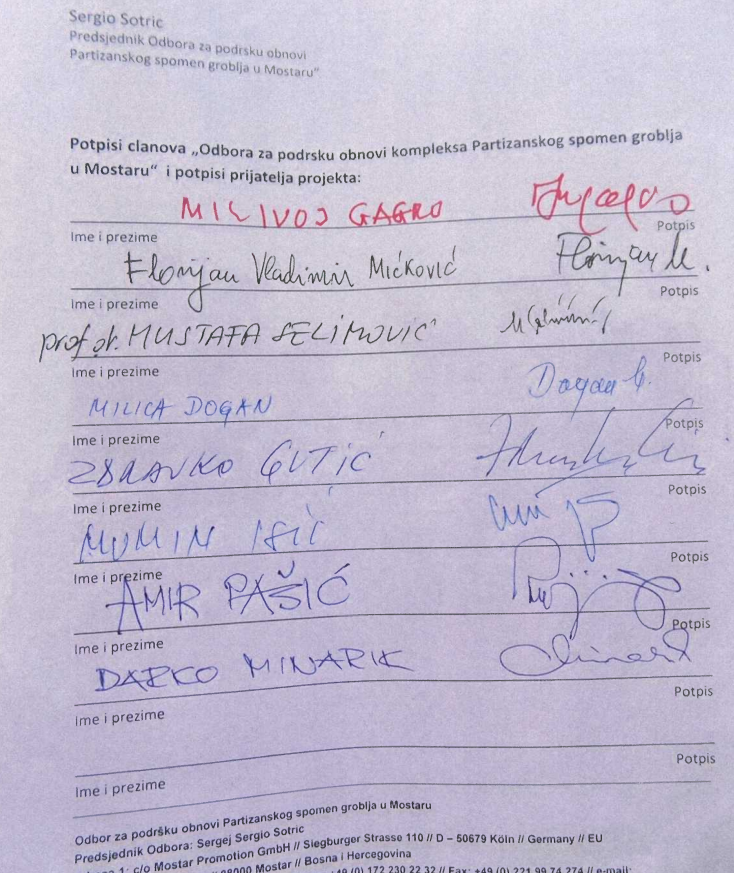 Sergio Sotric
Predsjednik Odbora za podrsku obnovi
Partizanskog spomen groblja u Mostaru"
Potpisi clanova „Odbora za podrsku obnovi kompleksa Partizanskog spomen groblja
u Mostaru“ i potpisi prijatelja projekta:
MILIVOJ GAGRO
Ime i prezime Potpis
Florijan Vladimir Mićković Florijan M.
Ime i prezime Potpis
prof dr. MUSTAFA SELIMOVIĆ
Ime i prezime Potpis
MILICA DOGAN Dogan
Ime i prezime Potpis
ZDRAVKO GUTIĆ
Ime i prezime Potpis
MUMIN ISIĆ
Ime i prezime Potpis
AMIR PAŠIĆ
Ime i prezime Potpis
DARKO MINARIK Minarik
Ime i prezime Potpis
Ime i prezime Potpis
Odbor za podršku obnovi Partizanskog spomen groblja u Mostaru
Predsjednik Odbora: Sergej Sergio Sotric
1: c/o Mostar Promotion GmbH // Siegburger Strasse 110 // D – 50679 Köln // Germany // EU
88000 Mostar // Bosna i Hercegovina
+49 (0) 172 230 22 32 // Fax: +49 (0) 221 99 74 274 // e-mail: